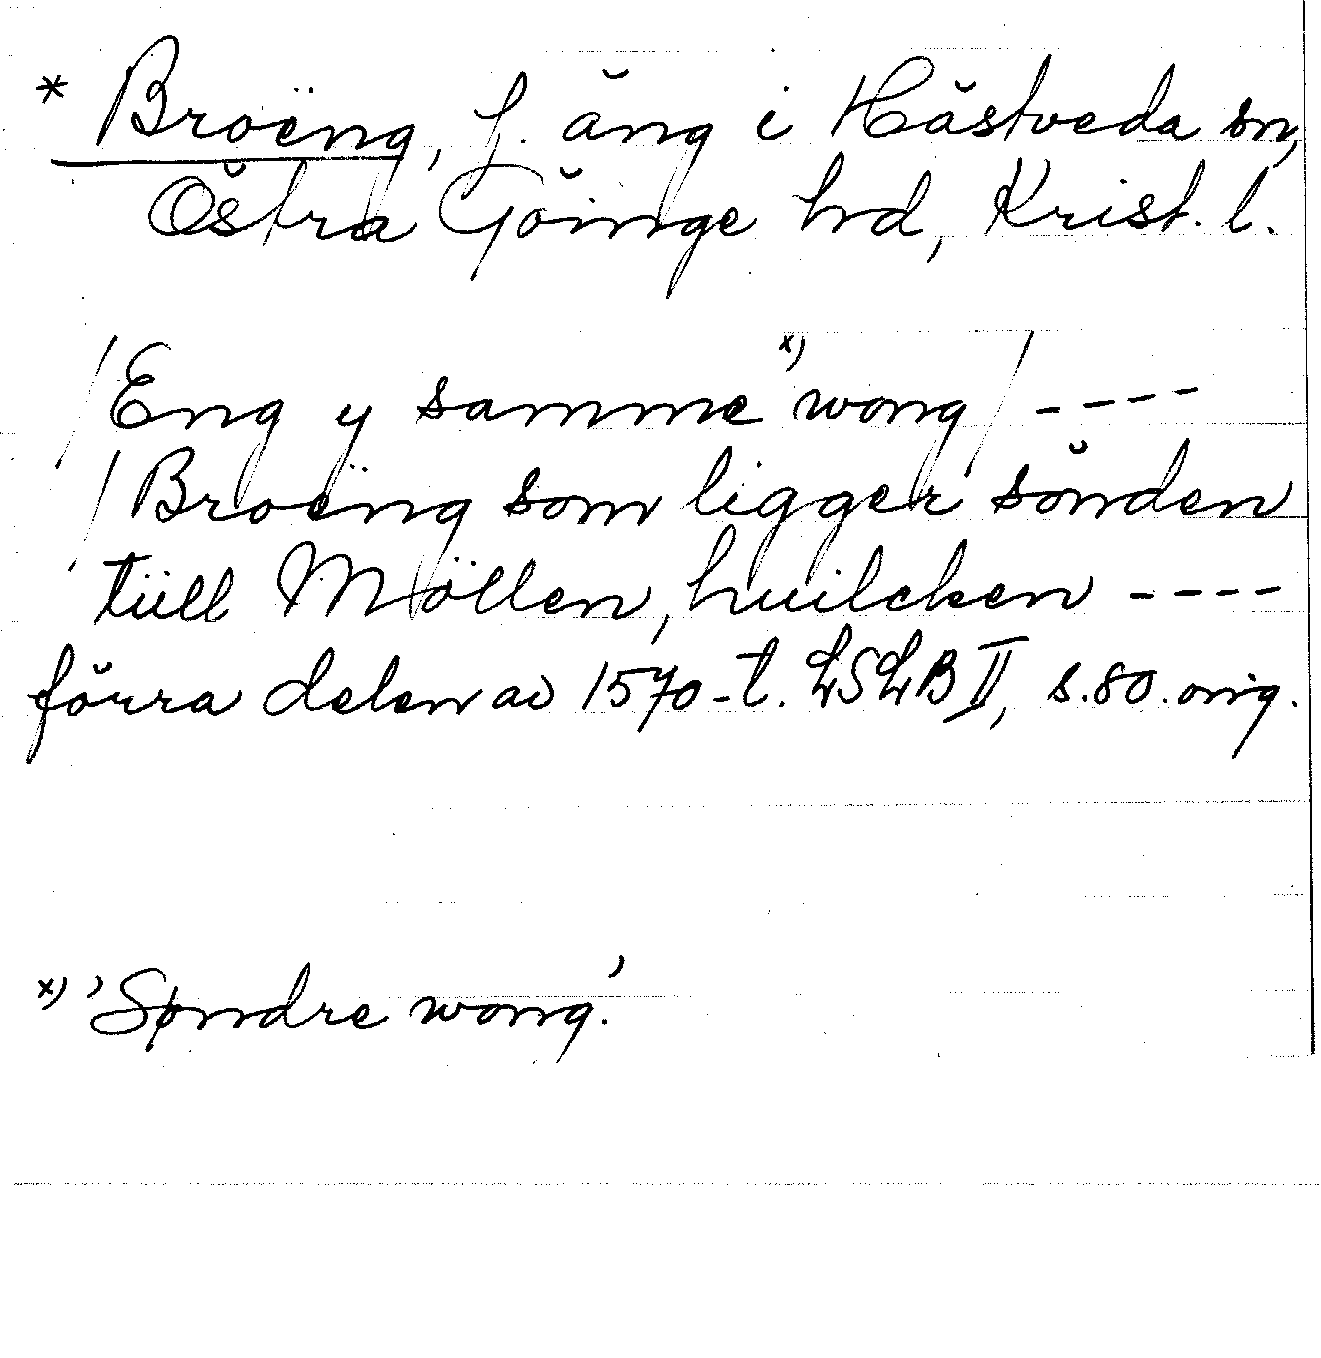 * Broëng, f. äng i Hästveda sn,
Östra Göinge hrd, Krist. l.
/Eng y samme x) wong/ ----
/Broëng som ligger sönden
tiill Möllen, huilcken ----
förra delen av 1570-t. LSLB II, s. 80. orig.
x) 'Søndre wong.'